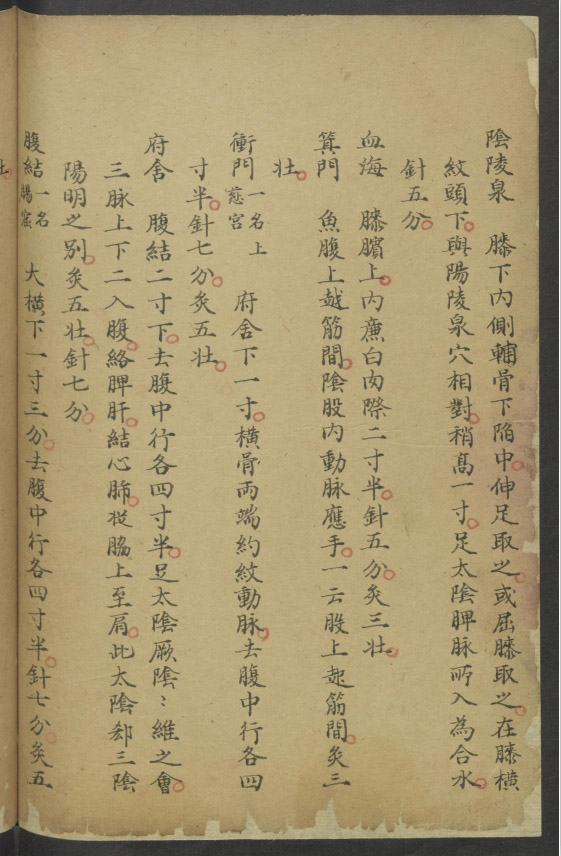 陰陵泉　膝下內側輔骨下陷中伸足取之或屈膝取之在膝橫
紋頭下與陽陵泉穴相對稍高一寸足太陰脾脉所入為合水
針五分
血海　膝臏上內廉白肉際二寸半針五分灸三壯
箕門　魚腹上越筋間陰股內動脉應手一云股上起筋間灸三
壯
衝門一名上慈宮　府舍下一寸橫骨兩端約紋動脉去腹中行各四
寸半針七分灸五壯
府舍　腹結二寸下去腹中行各四寸半足太陰厥陰〻維之會
三脉上下二入腹絡脾肝結心肺從脇上至肩此太陰郄三陰
陽明之別灸五壯針七分
腹結一名腸窟　大橫下一寸三分去腹中行各四寸半針七分灸五
壯